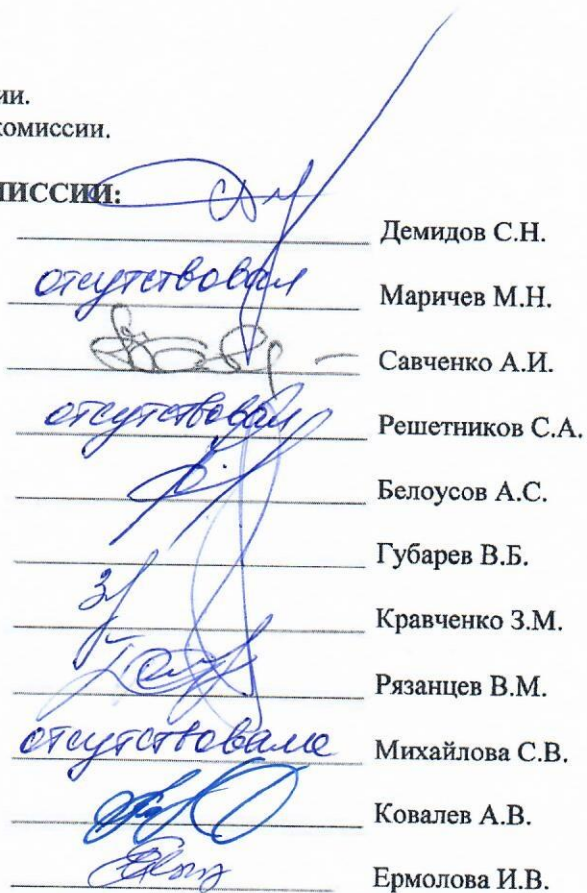 ии.
комиссии.
МИССИИ:
Демидов С.Н.
отсутствовал Маричев М.Н.
Савченко А.И.
отсутствовал Решетников С.А.
Белоусов А.С.
Губарев В.Б.
Кравченко З.М.
Рязанцев В.М.
отсутствовала Михайлова С.В.
Ковалев А.В.
Ермолова И.В.